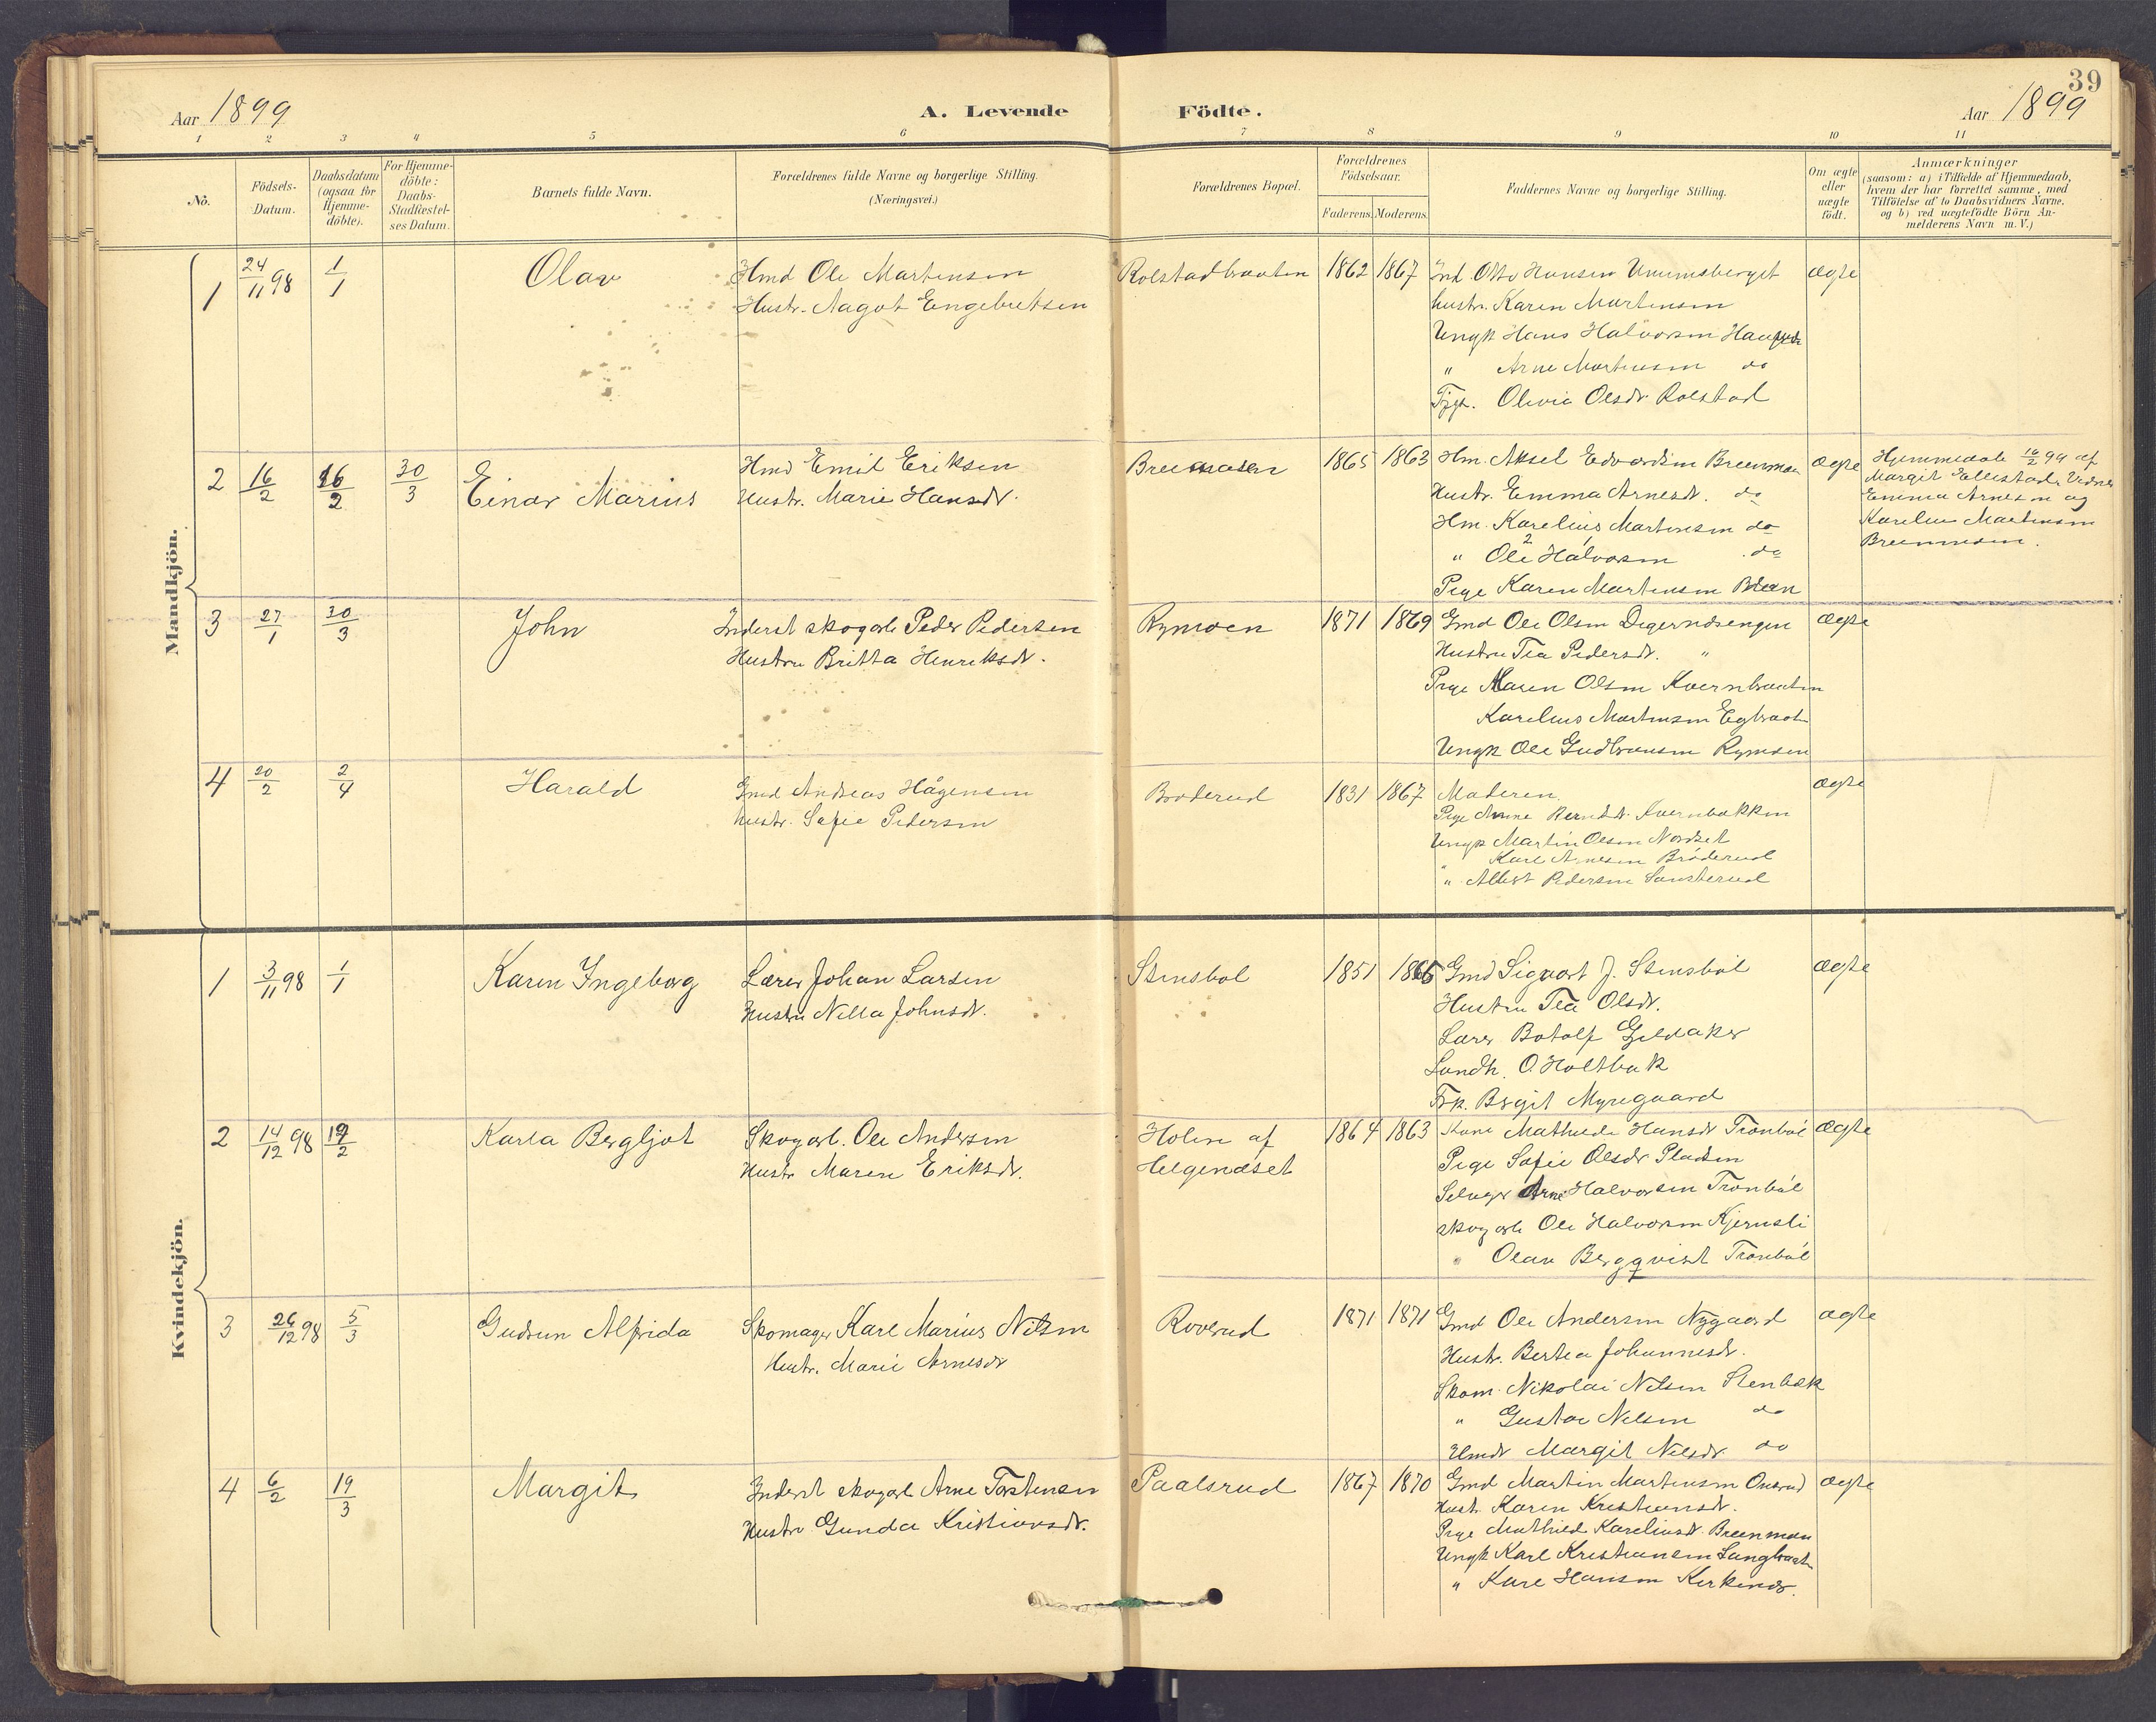 39
Aar 1899
A. Levende Födte.
Aar 1899
1 2 3 4 5 6 7 8 9 10 11
No.
Födsels-Datum.
Daabsdatum (ogsaa for Hjemme-döbte).
For Hjemme-döbte: Daabs-Stadfæstel-ses Datum.
Barnets fulde Navn.
Forældrenes fulde Navne og borgerlige Stilling.
(Næringsvei.)
Forældrenes Bopæl.
Forældrenes Födselsaar.
Faderens. Moderens.
Faddernes Navne og borgerlige Stilling.
Om ægte eller uægte födt.
Anmærkninger
(saasom: a) i Tilfælde af Hjemmedaab,
hvem der har forrettet samme, med
Tilföielse af to Daabsvidners Navne,
og b) ved uægtefödte Börn An-
melderens Navn m. V.)
Mandkjön.
1 24/11 98 1/1 Olav
Hmd Ole Martinsen
Hustr. Aagot Engebretsen
Rolstadbraaten 1862 1867
Ind. Otto Hansen
hustr. Karen Martinsen
Ungk Hans Halvorsen
" Arne Martinsen do
Olivia Olsdr Rolstad
ægte
2 16/2 16/2 30/3 Einar Marius
Hmd Emil Eriksen
Hustr. Marie Hansdr.
Breenmoen 1865 1863
Hm. Aksel Edvardsen Breenmoen
Hustr. Emma Arnesdr. do
Hm. Karelius Martinsen do
" Ole Halvorsen do
Pige Karen Martinsen Breen
ægte
Hjemmedøb 16/2 99 af
Margit Ellestad. Vidner
Emma Arnesen og
Karelius Martinsen
Breenmoen.
3 27/1 30/3 John
Inderst skogarb Peder Pedersen
Hustru Britta Henriksdr.
Rymoen 1871 1869
Gmd Ole Olsen Digernæsengen
Hustru Tea Pedersdr. "
Pige Maren Olsen Kvernbraaten
Karelius Martinsen
Ungk Ole Gudbransen Rymoen
ægte
4 20/2 2/4 Harald
Gmd Andreas Hågensen
hustr. Sofie Pedersen
Broderud 1831 1867
Moderen
Pige Anne Kvernbakken
Ungk Martin Olsen Nordset
Karl Arnesen Bröderud
" Albert Pedersen
ægte
Kvindekjön.
1 3/11 98 1/1 Karen Ingeborg
Lærer Johan Larsen
Hustru Nilla Johnsdr.
Stensbol 1851 1865
Gmd Sigvart J. Stensböl
Hustru Tea Olsdr.
Lærer Botolf Gjeldaker
Landh. O. Holtbak
Frk. Birgit Myregaard
ægte
2 14/12 98 19/2 Karla Bergljot
Skogarb. Ole Andersen
Hustr Maren Eriksdr.
Holen af
Helgenæset
1864 1863
Kone Mathilde Hansdr Tronböl
Pige Sofie Olsdr Pladsen
Selveger Arne Halvorsen Tronböl
skogarb Ole Halvorsen Kjernsli
" Olav Bergqvist Tronböl
ægte
3 26/12 98 5/3 Gudrun Alfrida
Skomager Karl Marius Nilsen
Hustr. Marie Arnesdr
Roverud 1871 1871
Gmd Ole Andersen Nygaard
Hustr. Bertea Johannesdr.
Skom. Nikolai Nilsen Stenbæk
" Gustav Nilsen do
Margit Nilsdr. do
ægte
4 6/2 19/3 Margit
Inderst skogarb Arne Torstensen
Hustr Gunda Kristiansdr.
Paalsrud 1867 1870
Gmd Martin Martinsen Onsrud
Hustr. Karen Kristiansdr.
Pige Mathild Kareliusdr. Breenmoen
Ungk Karl Kristiansen Langbraat
" Karl Hansen Kirkenær.
ægte